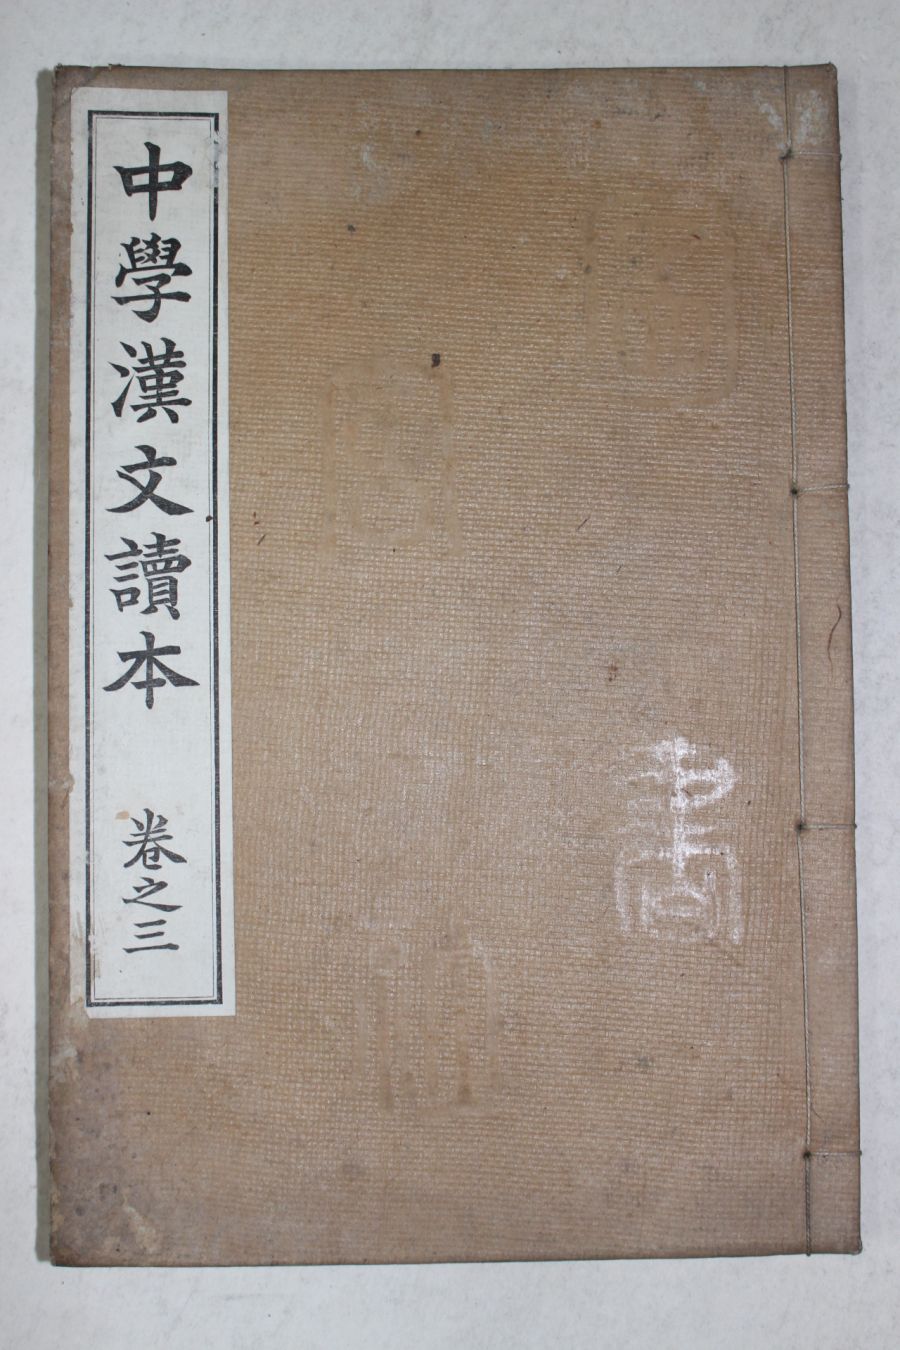 中學漢文讀本
卷之三
書